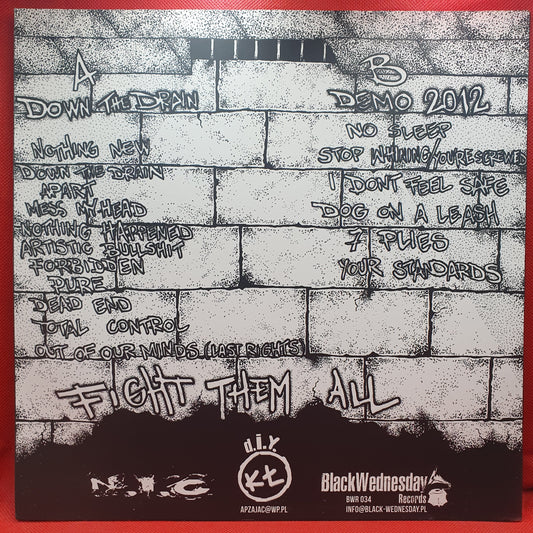 A
DOWN THE DRAIN
NOTHING NEW
DOWN THE DRAIN
APART
MESS MY HEAD
NOTHING HAPPENED
ARTISTIC BULLSHIT
FORBIDDEN
PURE
DEAD END
TOTAL CONTROL
OUT OF OUR MINDS (LAST RIGHTS)
B
DEMO 2012
NO SLEEP
STOP WHINING/YOU'RE SCREWED
I DONT FEEL SAFE
DOG ON A LEASH
7 PLIES
YOUR STANDARDS
FIGHT THEM ALL
N.I.C
d.i.y.
KŁ
APZAJAC@WP.PL
BlackWednesday
Records
BWR 034
INFO@BLACK-WEDNESDAY.PL